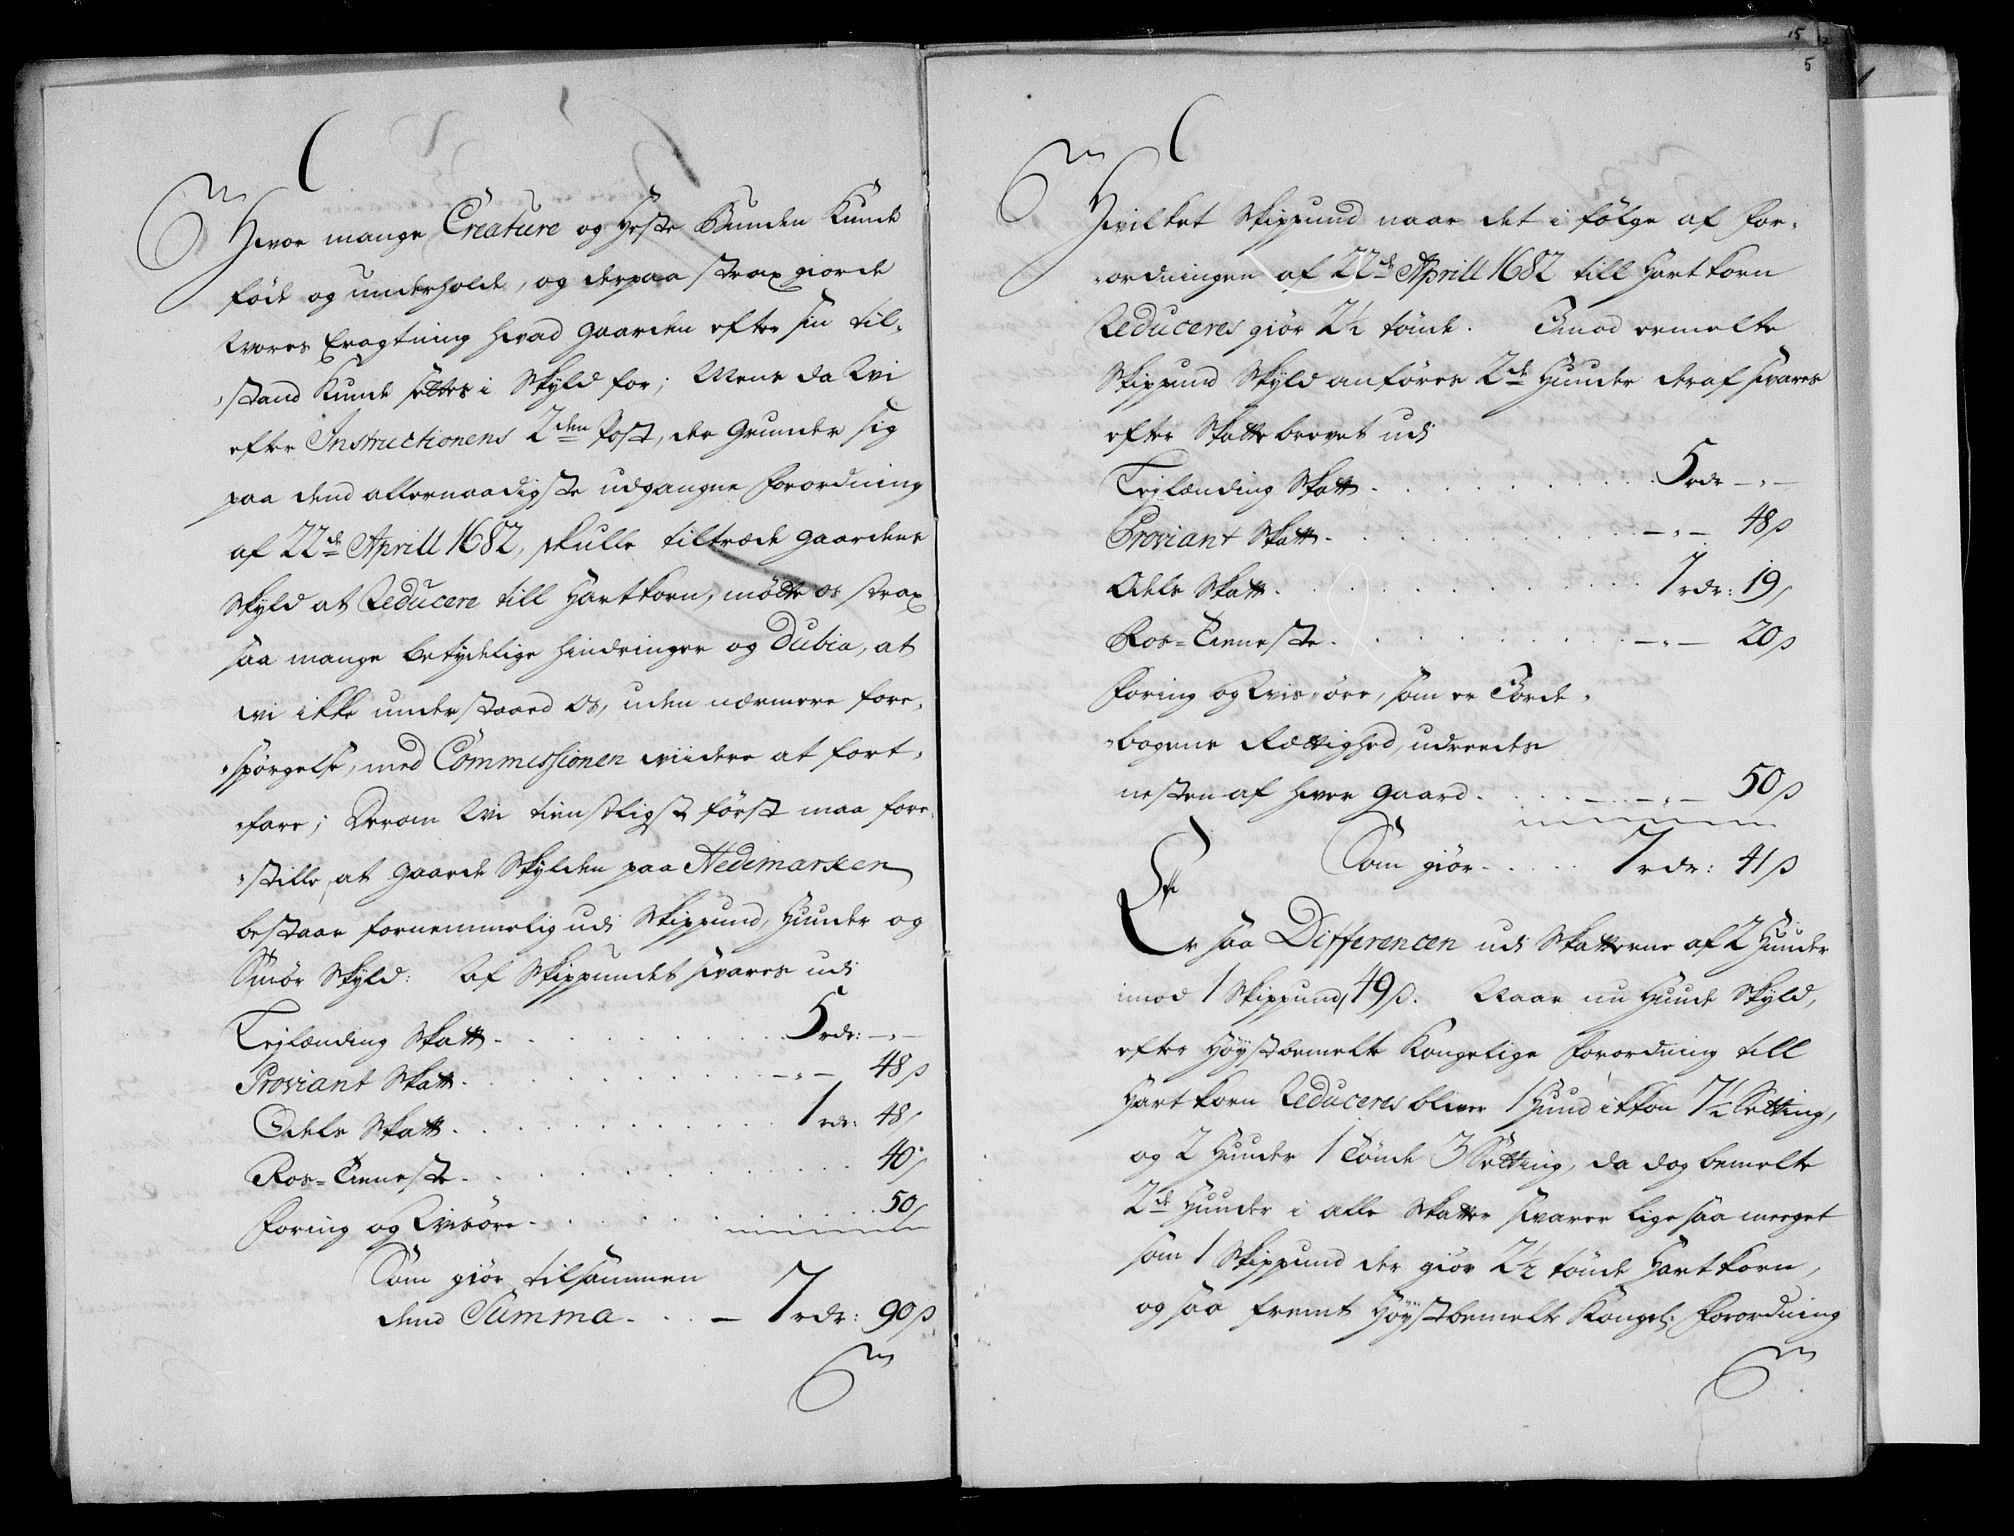 Hvor mange Creature og Heste Bunden Kunde
føde og underholde, og derpaa strax giorde
Wores Eragtning hvad gaarden efter sin til-
stand Kunde settes i Skyld for; Mens da Wi
efter Instructionens 2den Post, der grunder sig
paa dend allernaadigste udgangne forordning
af 22de Aprill 1682, skulle tiltræde gaardens
Skyld at Reducere till Hartkorn, mødte os strax
saa mange betydelige hindringer og Dubia, at
wi ikke understaaed os, uden nærmere fore-
spørgelse, med Commissionen wiidere at fort-
fare; Derom Wi tienstligst først maa fore-
stille, at gaarde Skylden paa Hedemarken
bestaar fornemmelig udi Skippund, Hunder og
Smør Skyld: Af Skippundet svares udi
Leylænding Skatt . . . 5 rdr: – " –
Proviant Skatt . . . – " – 48 ß
Odels Skatt . . . 1 rdr: 48 ß
Ros-Tieneste . . . 40 ß
Foring og Wisøre . . . 50 ß
Som giør tilsammen
dend Summa . . . – 7 rdr: 90 ß
15
5
Hvilket Skippund naar det i følge af For-
ordningen af 22de Aprill 1682 till Hartkorn
Reduceres giør 2½ tønde. Imod ermelte
Skippund Skyld anføres 2de Hunder deraf svares
efter Skattebrevet udi
Leylænding Skatt . . . 5 rdr – " –
Proviant Skatt . . . – " – 48 ß
Odels Skatt . . . 1 rdr: 19 ß
Ros-Tieneste . . . – " – 20 ß
Foring og Wis-øre, som er Jorde-
bogens Rettighed, udreedes
nesten af hver gaard . . . – " – 50 ß
Som giør . . . 7 rdr: 41 ß
Er saa Differencen udi Skatterne af 2 Hunder
imod 1 Skippund, 49 ß. Naar nu Hunde Skyld,
efter Høystbemelte Kongelige Forordning till
Hartkorn Reduceres bliver 1 Hund ikkon 7½ Setting,
og 2 Hunder 1 Tønde 3 Setting, da dog bemelte
2de Hunder i alle Skatter svarer lige saa meeget
som 1 Skippund der giør 2½ tønde Hartkorn,
og saa fremt Høystbemelte Kongel: Forordning